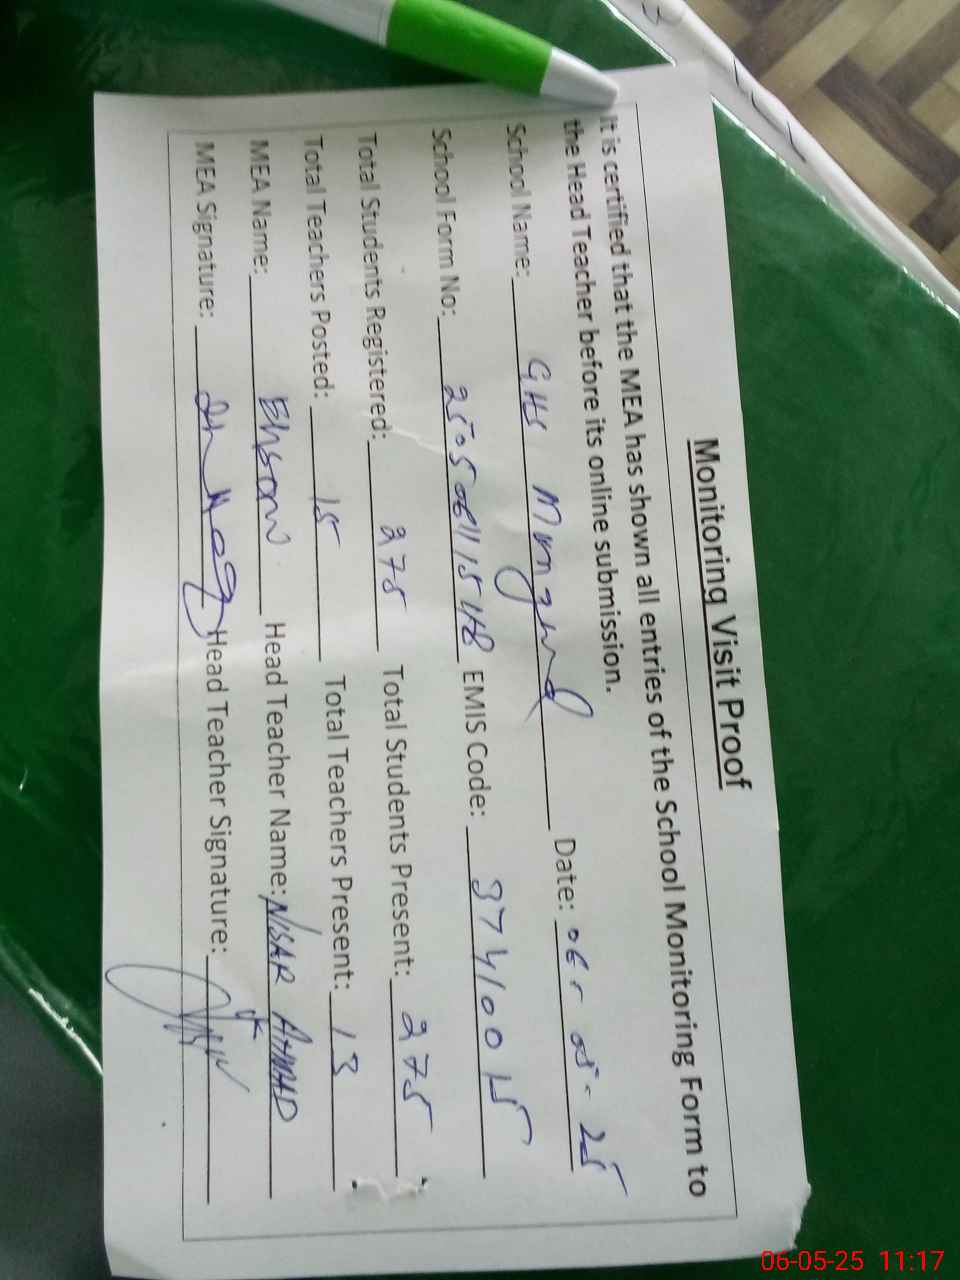 Monitoring Visit Proof
It is certified that the MEA has shown all entries of the School Monitoring Form to
the Head Teacher before its online submission.
School Name: GHS Date: 06-05-25
School Form No: 25050611 1548 EMIS Code: 37410015
Total Students Registered: 275 Total Students Present: 275
Total Teachers Posted: 15 Total Teachers Present: 13
MEA Name: Head Teacher Name: NISAR AHMAD
MEA Signature: Head Teacher Signature:
06-05-25 11:17